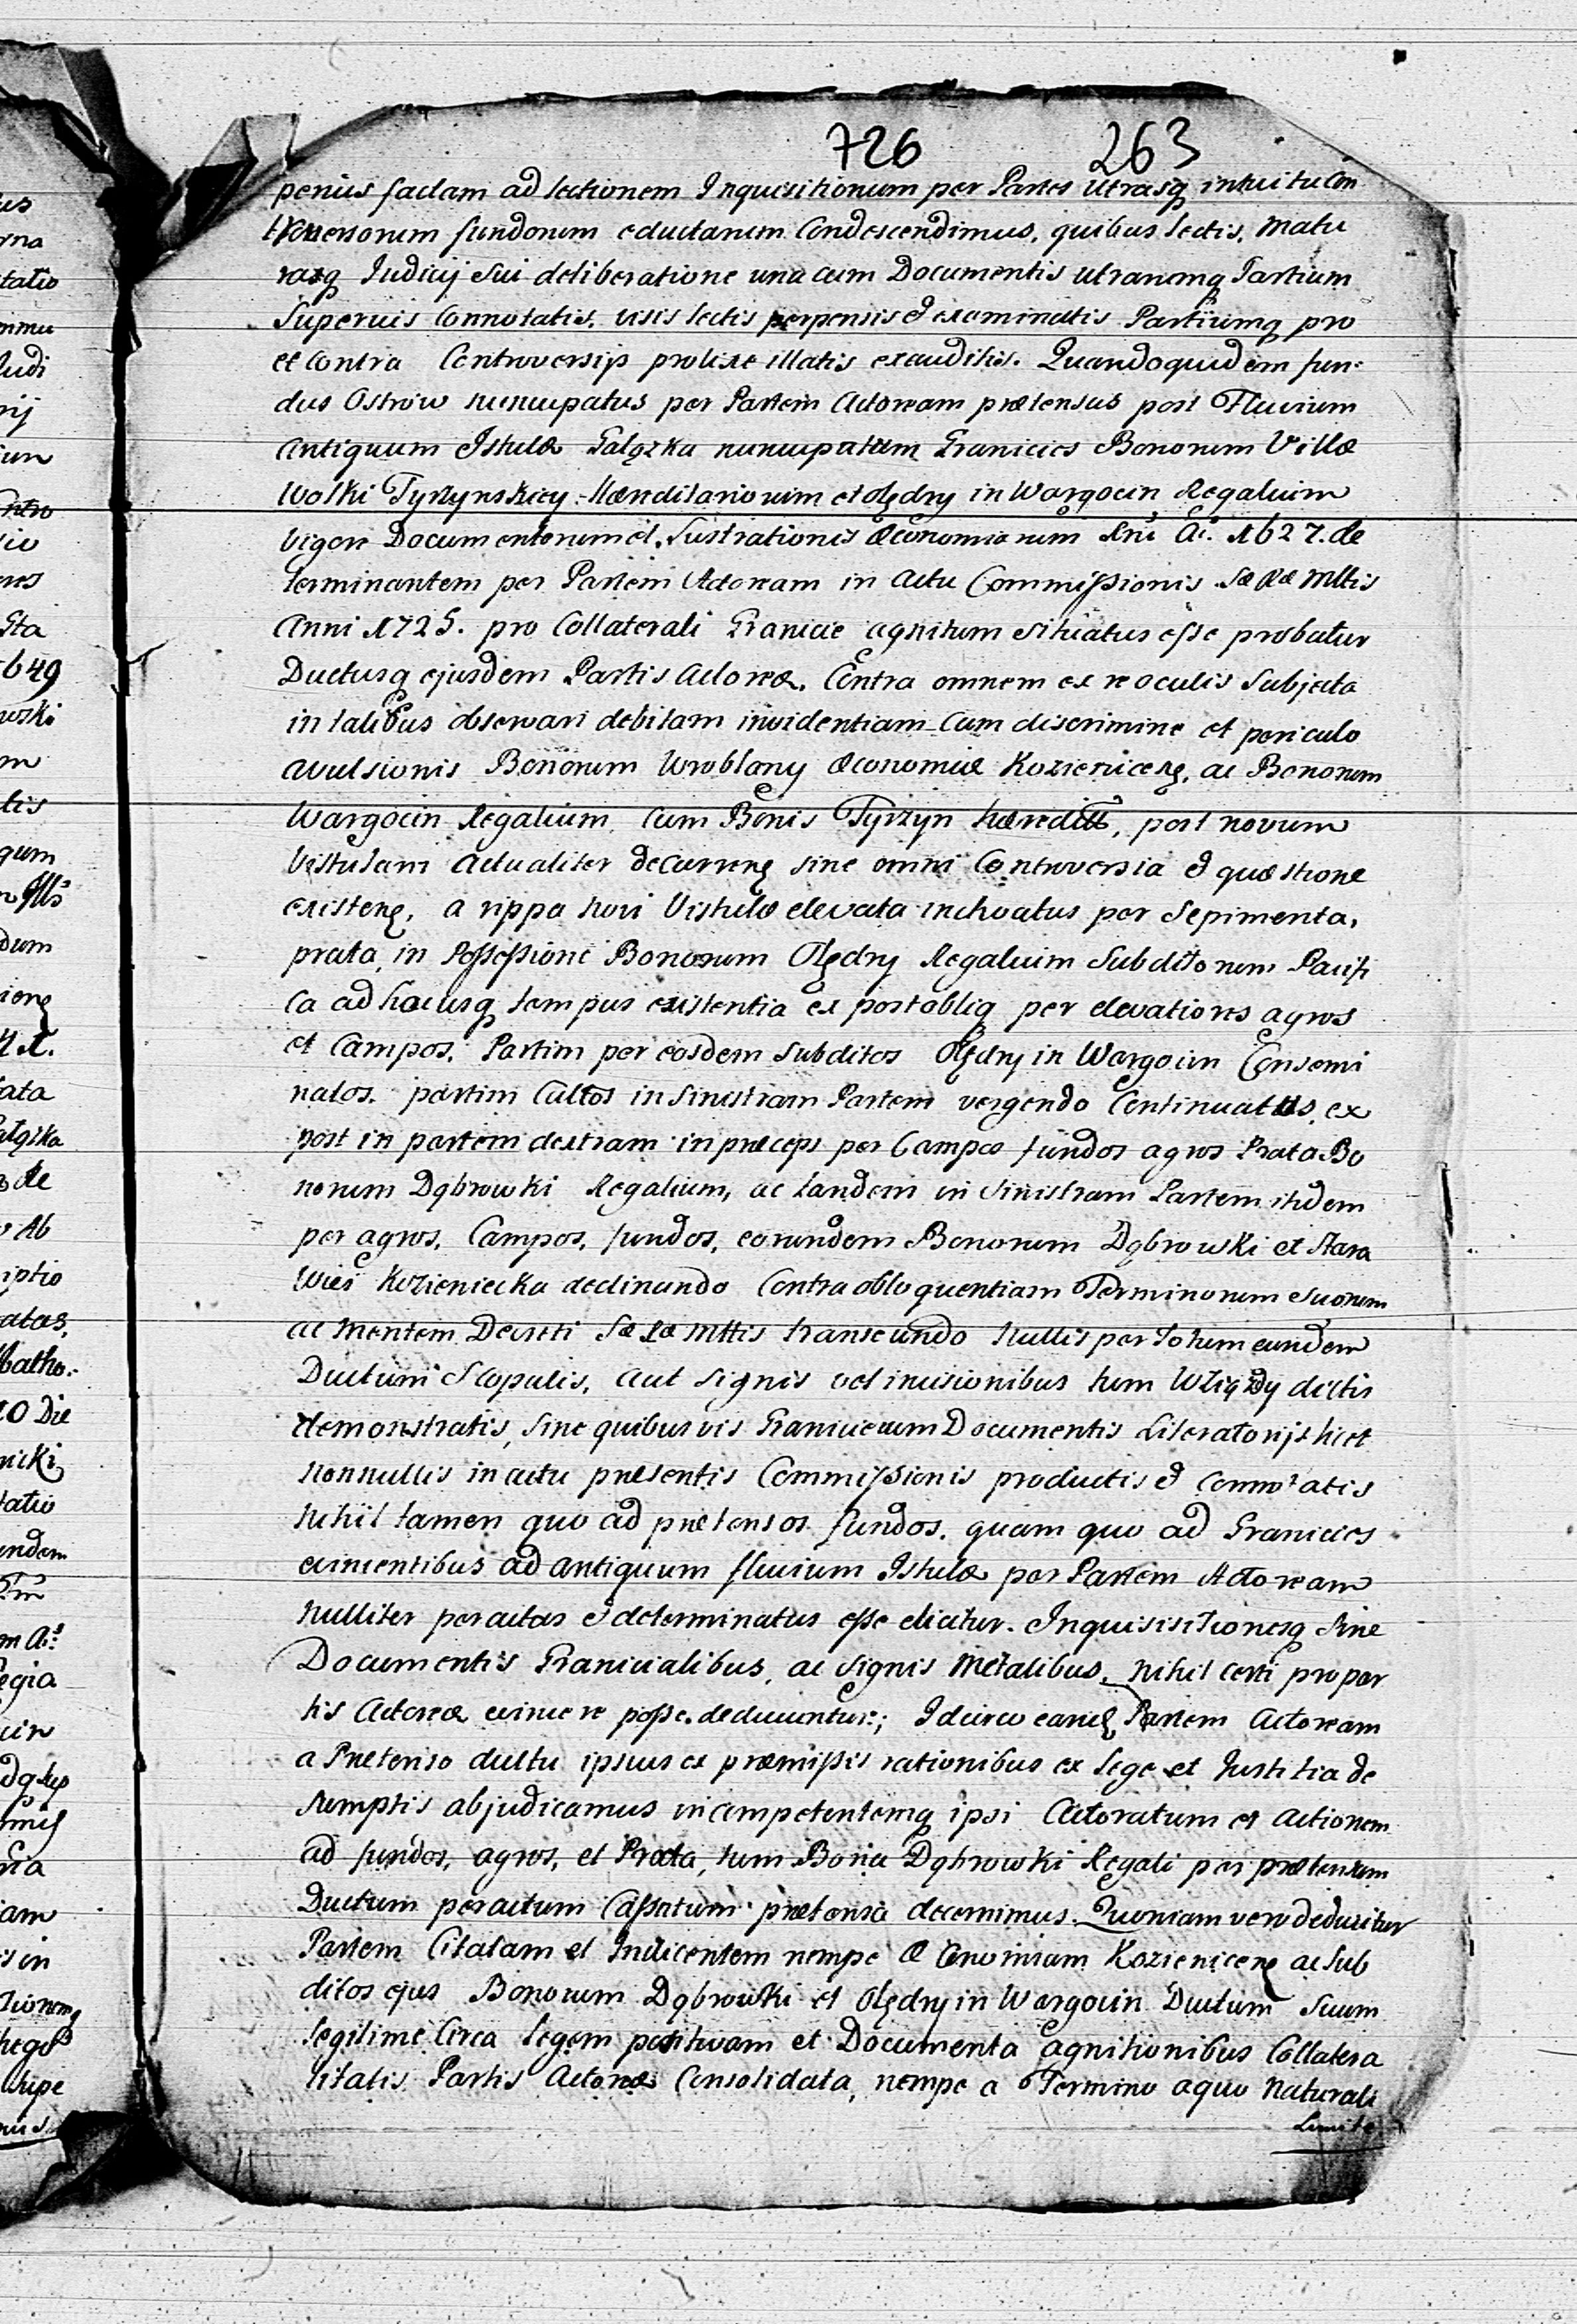 726 263
penius factam ad lectionem Inquisitionum per Partes Utrasq intuitu Con
troversorum fundorum eductarum Condescendimus, quibus lectis, Matu
raq Iudicij Sui deliberatione una cum Documentis utrarumq Partium
Superius Connotatis, visis lectis perpensis & examinatis Partiumq pro
et Contra Controversijs prolixe illatis exauditis. Quandoquidem fun-
dus Ostrow nuncupatus per Partem Actoream prætensus post Fluvium
Antiquum Istulæ Gałązka nuncupatum Granicies Bonorum Villæ
Wolki Tyrzynskiey Hæreditariorum et Olędry in Wargocin Regalium
vigore Documentorum et Lustrationis Œconomiarum Ani Ai. 1627. de
terminantem per Partem Actoream in actu Commissionis Sæ Ræ Mttis
Anni 1725. pro Collaterali Granicie agnitum situatus esse probatur
Ductusq ejusdem Partis Actoreæ. Contra omnem ex re oculis Subjecta
in talibus observari debitam invidentiam Cum discrimine et periculo
avulsionis Bonorum Wroblony Œconomiæ Kozienicenę, ac Bonorum
Wargocin Regalium, Cum Bonis Tyrzyn hæreditt, post novum
Vistulam Actualiter decurrenę sine omni Controversia & quæstione
existenę, a rippa novi Vistulæ elevata inchoatus per Sepimenta,
prata, in Possessione Bonorum Olędry Regalium Subditorum Pacifi
ca ad hocusq tempus existentia ex post obliq per elevationes agros
et Campos, Partim per eosdem Subditos Olędry in Wargocin Consemi
natos, partim Cultos in Sinistram Partem vergendo Continuatus, ex
post in partem dextram in præceps per Campos fundos agros Prata Bo
norum Dąbrowki Regalium, ac tandem in Sinistram Partem itidem
per agros, Campos, fundos, eorundem Bonorum Dąbrowki et Stara
Wieś Kozieniecka declinando Contra obloquentiam Terminorum Suorum
ac Mentem Decreti Sæ Ræ Mttis transeundo Nullis per totum eundem
Ductum Scopulis, aut Signis vel incisionibus tum Wziązdy dictis
demonstratis, Sine quibusvis Granicierum Documentis Literatorijs licet
Nonnullis in actu præsentis Commissionis productis & Connotatis
Nihil tamen quo ad prætensos fundos, quam quo ad Granicies
evincentibus ad antiquum fluvium Istulæ per Partem Actoream
Nulliter peractas & determinatus esse elicitur. Inquisisitionesq Sine
Documentis Granicialibus, ac Signis Metalibus, Nihil certi pro par
tis Actoreæ evincere posse deducuntur; Idcirco eandę Partem Actoream
a Prætenso ductu ipsius ex præmissis rationibus ex Lege et Iustitia de
sumptis abjudicamus incompetentemq ipsi Actoratum et Actionem
ad fundos, agros, et Prata, tum Bonia Dąbrowki Regali per prætensum
Ductum peractum Cassatum prætensa decernimus. Quoniam vero deducitur
Partem Citatam et Indicentem nempe Œconomiam Kozienicenę ac Sub
ditos ejus Bonorum Dąbrowki et Olędry in Wargocin Ductum Suum
legitime Circa legem positivam et Documenta agnitionibus Collatera
litatis Partis Actoreæ Consolidata, nempe a Termino a quo Naturali
Limite